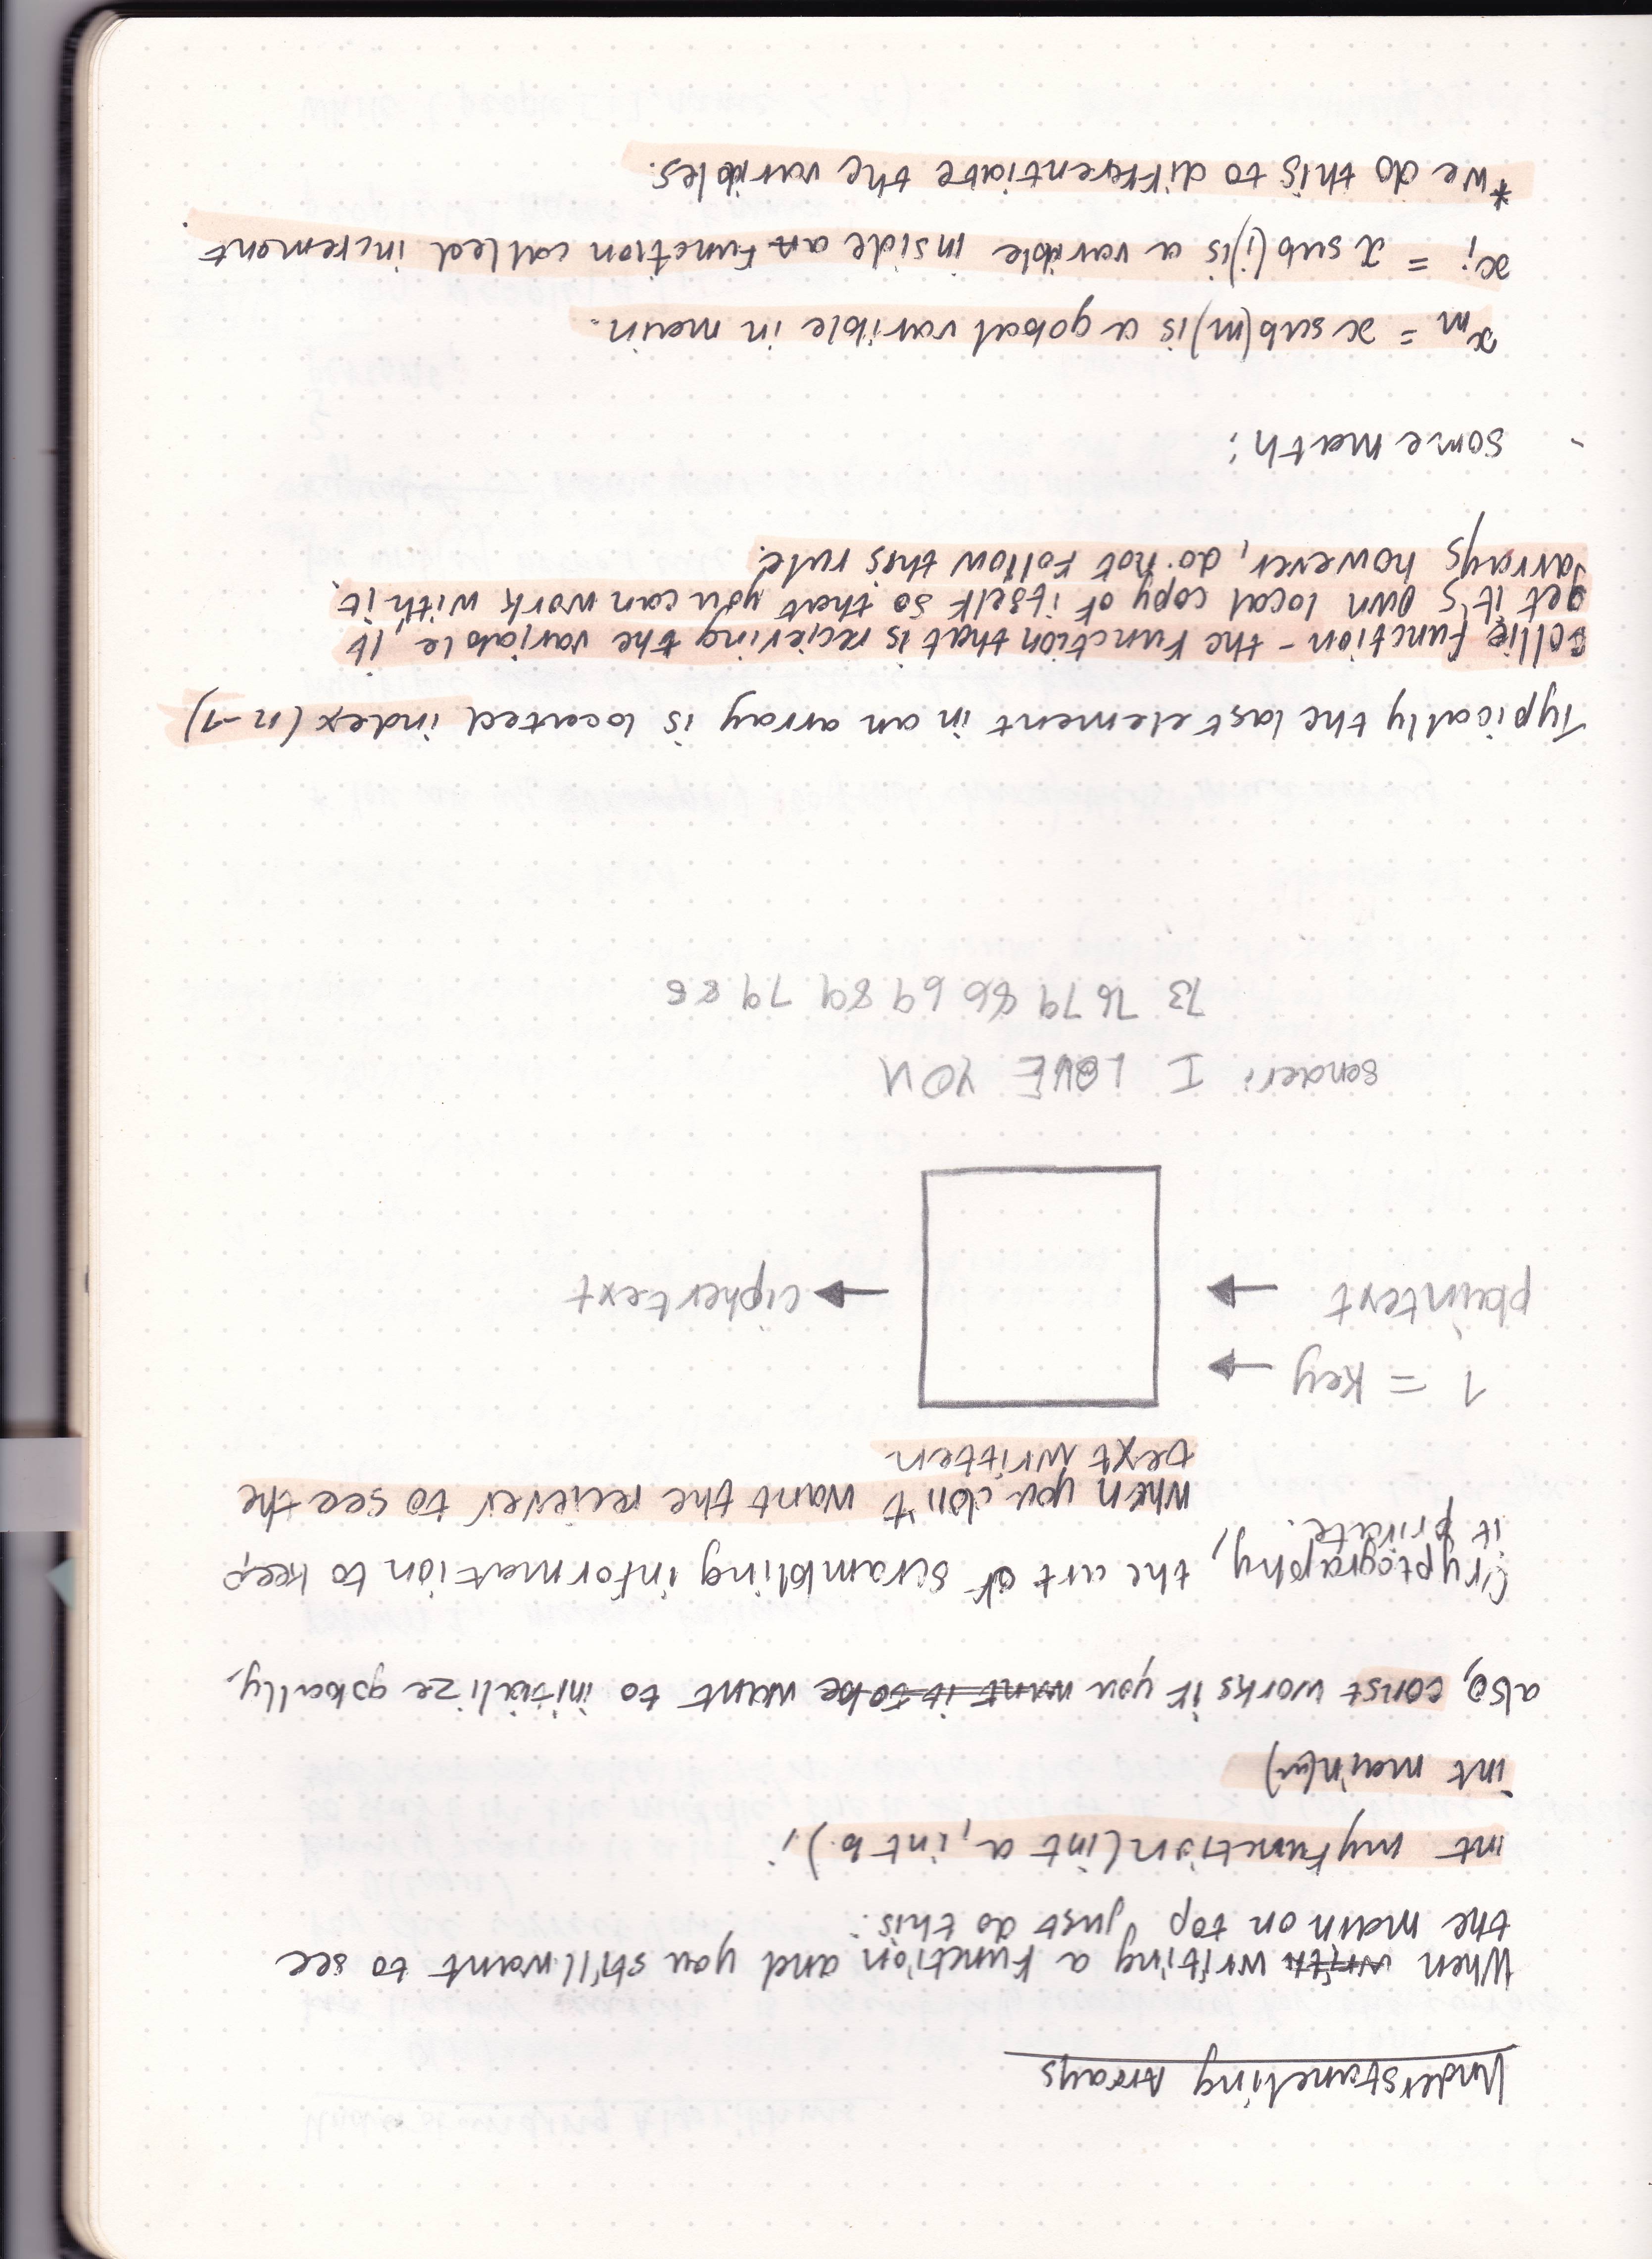 Understanding Arrays
When writing a function and you still want to see
the main on top just do this:
int myfunction(int a, int b);
int main()
also, const works if you want it to be want to initialize gobally,
Cryptography, the art of scrambling information to keep
it private.
when you don't want the reciever to see the
text written
1 = key →
plaintext → → ciphertext
sender: I LOVE YOU
73 76 79 86 69 89 79 85
Typically the last element in an array is located index (n-1)
collie function - the function that is recieving the variable, it
get it's own local copy of itself so that you can work with it.
arrays however, do not follow this rule.
- some math:
xm = x sub(m) is a gobal varible in main.
xi = x sub(i) is a varible inside an function called increment.
*we do this to differentiate the varibles.